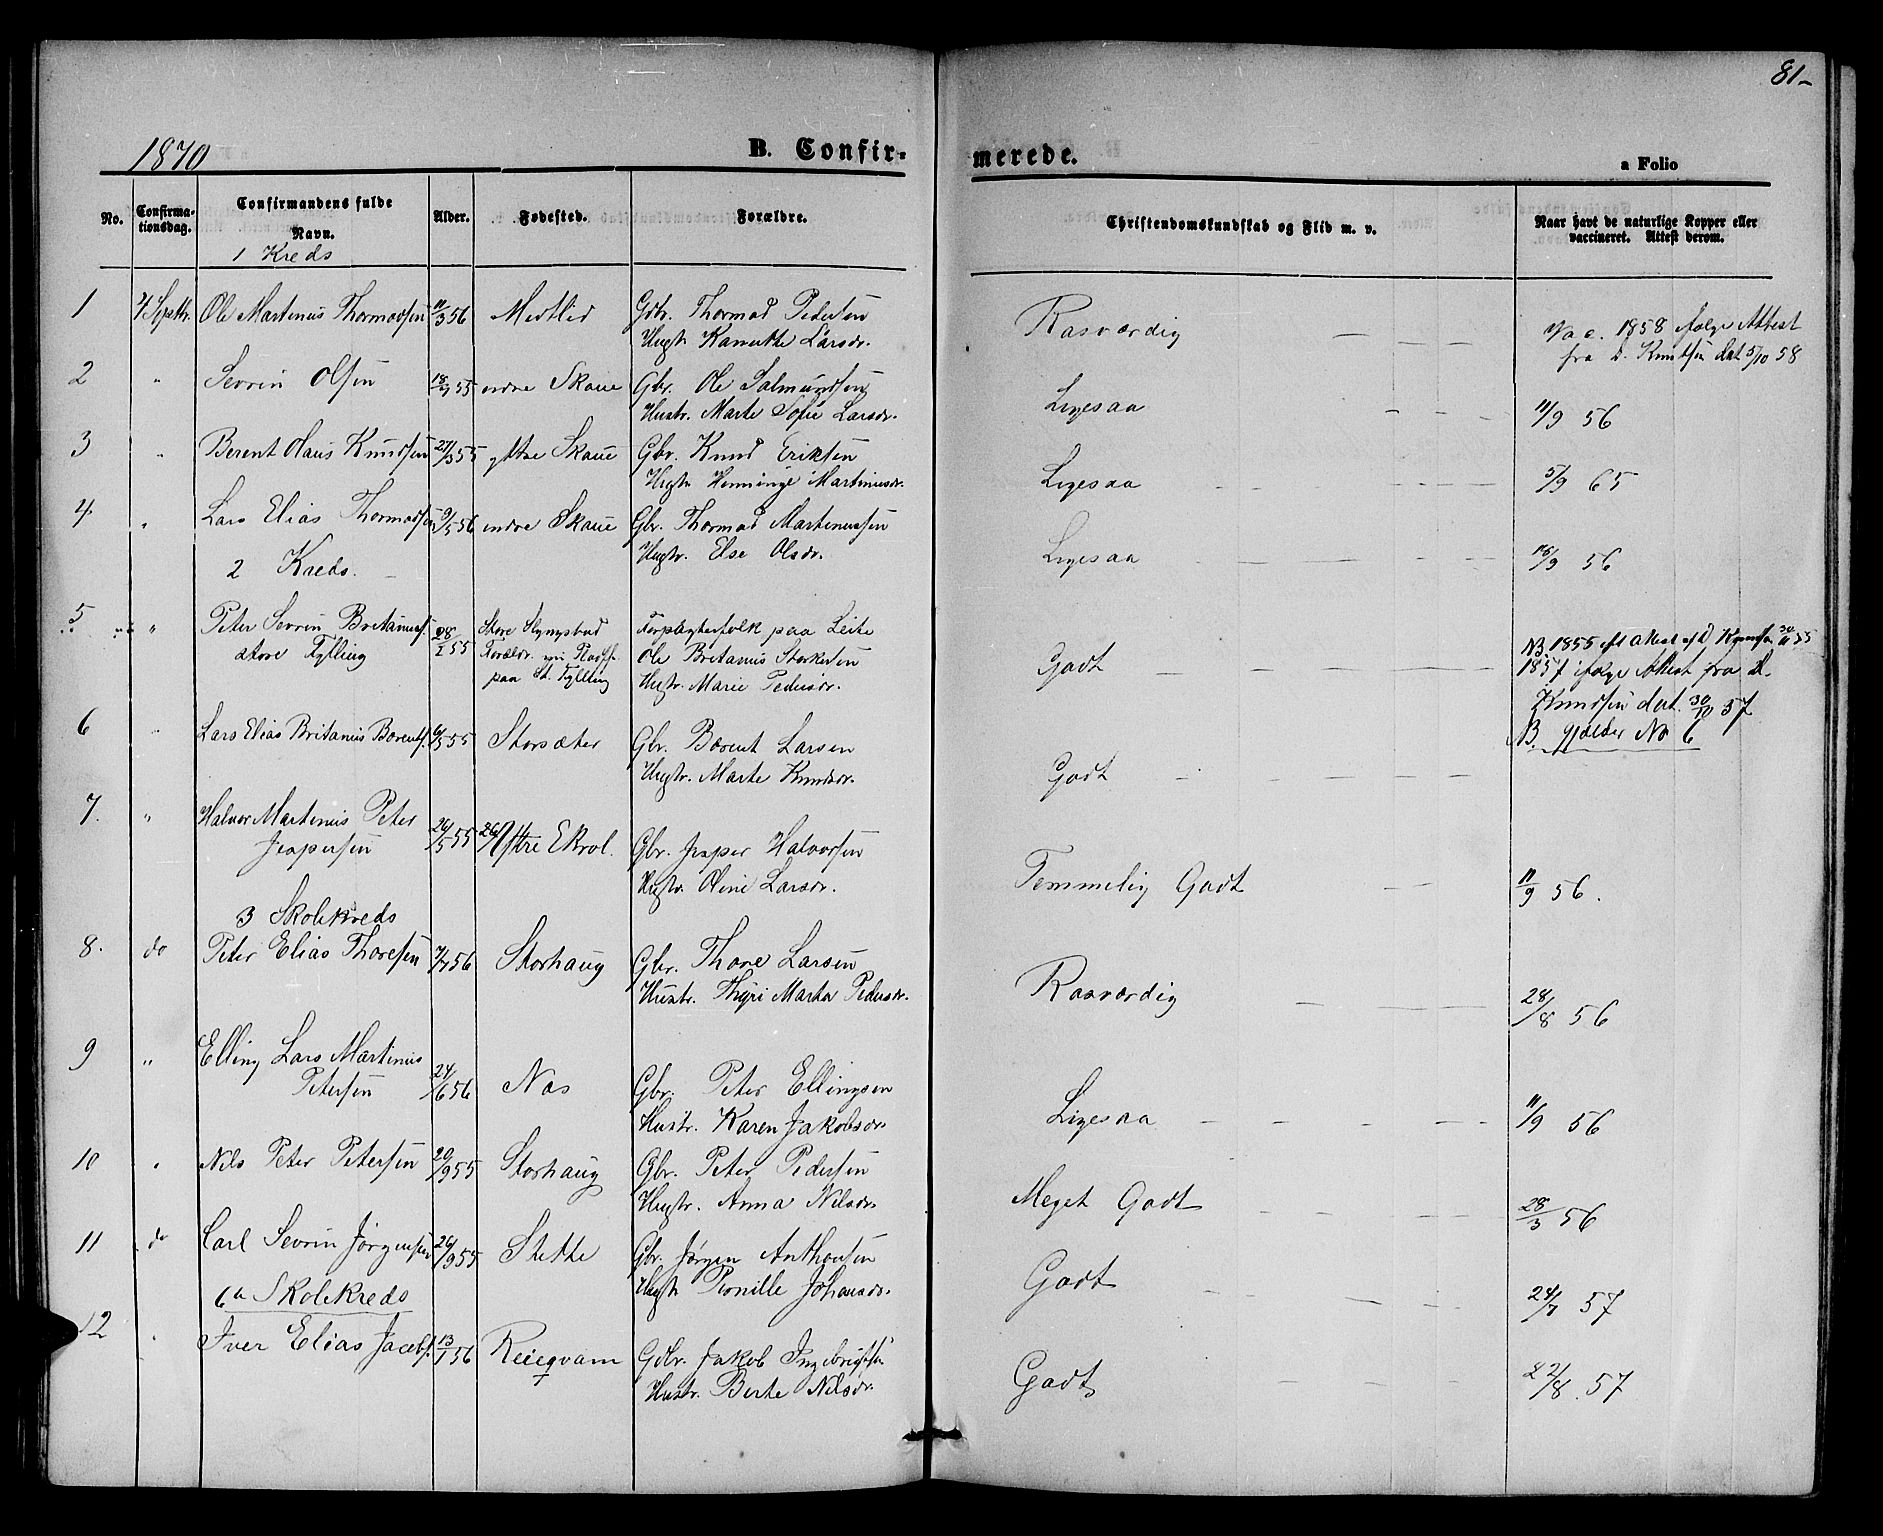 81-
1870
B. Confir-
merede.
a Folio
No.
Confirma-
tionsdag.
Confirmandens fulde
Navn.
Alder.
Fødested.
Forældre.
Christendomskundskab og Flid m. v.
Naar havt de naturlige Kopper eller
vaccineret. Attest derom.
1 Kreds
1 4 Septbr. Ole Martinus Thormodsen 11/3 56 Medlid Gbr. Thormod Pedersen
Hustr. Larsdr.
Rosværdig - - -
Vac. 1858 ifølge Attest
fra D. Knudsen dat 5/10 58
2 " Sevrin Olsen 18/9 55 indre Skaue Gbr. Ole Salmundsen
Hustr. Marte Sofie Larsdr.
Ligesaa - - - 11/9 56
3 " Berent Olaus Knudsen 27/3 55 yttre Skaue Gbr. Knud Eriksen
Hustr. Henninge Martinusdr.
Ligesaa - - - 5/9 65
4 " Lars Elias Thormodsen 9/5 56 indre Skaue Gbr. Thormod Martinussen
Hustr. Else Olsdr.
Ligesaa - - - 16/9 56
2 Kreds.
5 " Peter Sevrin Britanusf.
store Fylling
28/2 55 Store
Forældr. nu
paa St. Fylling
paa Leite
Ole Britanus Størkersen
Hustr. Marie Pedersdr.
Godt - - -
NB 1855 Attest Knudsen 30/11 55
1857 ifølge Attest fra D.
Knudsen dat. 30/10 57
NB. gjælder No 6
6 " Lars Elias Britanus Berentsf. 6/5 55 Storsæter Gbr. Berent Larsen
Hustr. Marte Knudsdr.
Godt - - -
7. " Halvor Martinus Peter
Jespersen
26/5 55 26/ Ystre Ekrol. Gbr. Jesper Halvorsen
Hustr. Oline Larsdr.
Temmelig Godt - - 11/9 56.
3 Skolekreds
8. do Peter Elias Thoresen 7/7 56 Storhaug Gbr. Thore Larsen
Hustr. Marta Pedersdr.
Rosværdig - - - 28/8 56
9 " Elling Lars Martinus
Petersen
24/6 56 Næs Gbr. Peter Ellingsen
Hustr. Karen Jakobsdr.
Ligesaa - - - 11/9 56
10 " Nils Peter Petersen 20/9 55 Storhaug Gbr. Peter Pedersen
Hustr. Anna Nilsdr.
Meget Godt - - - 28/3 56
11 do Carl Sevrin Jørgensen 26/9 55 Stette Gbr. Jørgen Anthonsen
Hustr. Pernille Johansdr.
Godt - - - 24/7 57
6te Skolekreds
12 " Iver Elias Jacobsf. 13/1 56 Reieqvam Gdbr. Jakob Ingebrigtsen
Hustr. Berte Nilsdr.
Godt - - - 22/8. 57